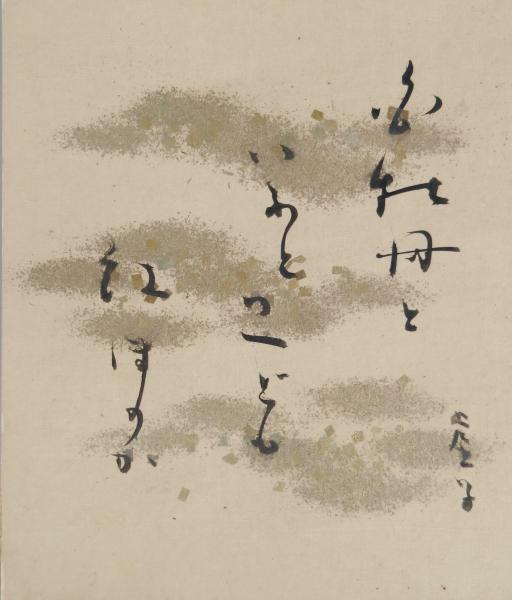 白牡丹と
いふといへども
紅ほのか
虚子